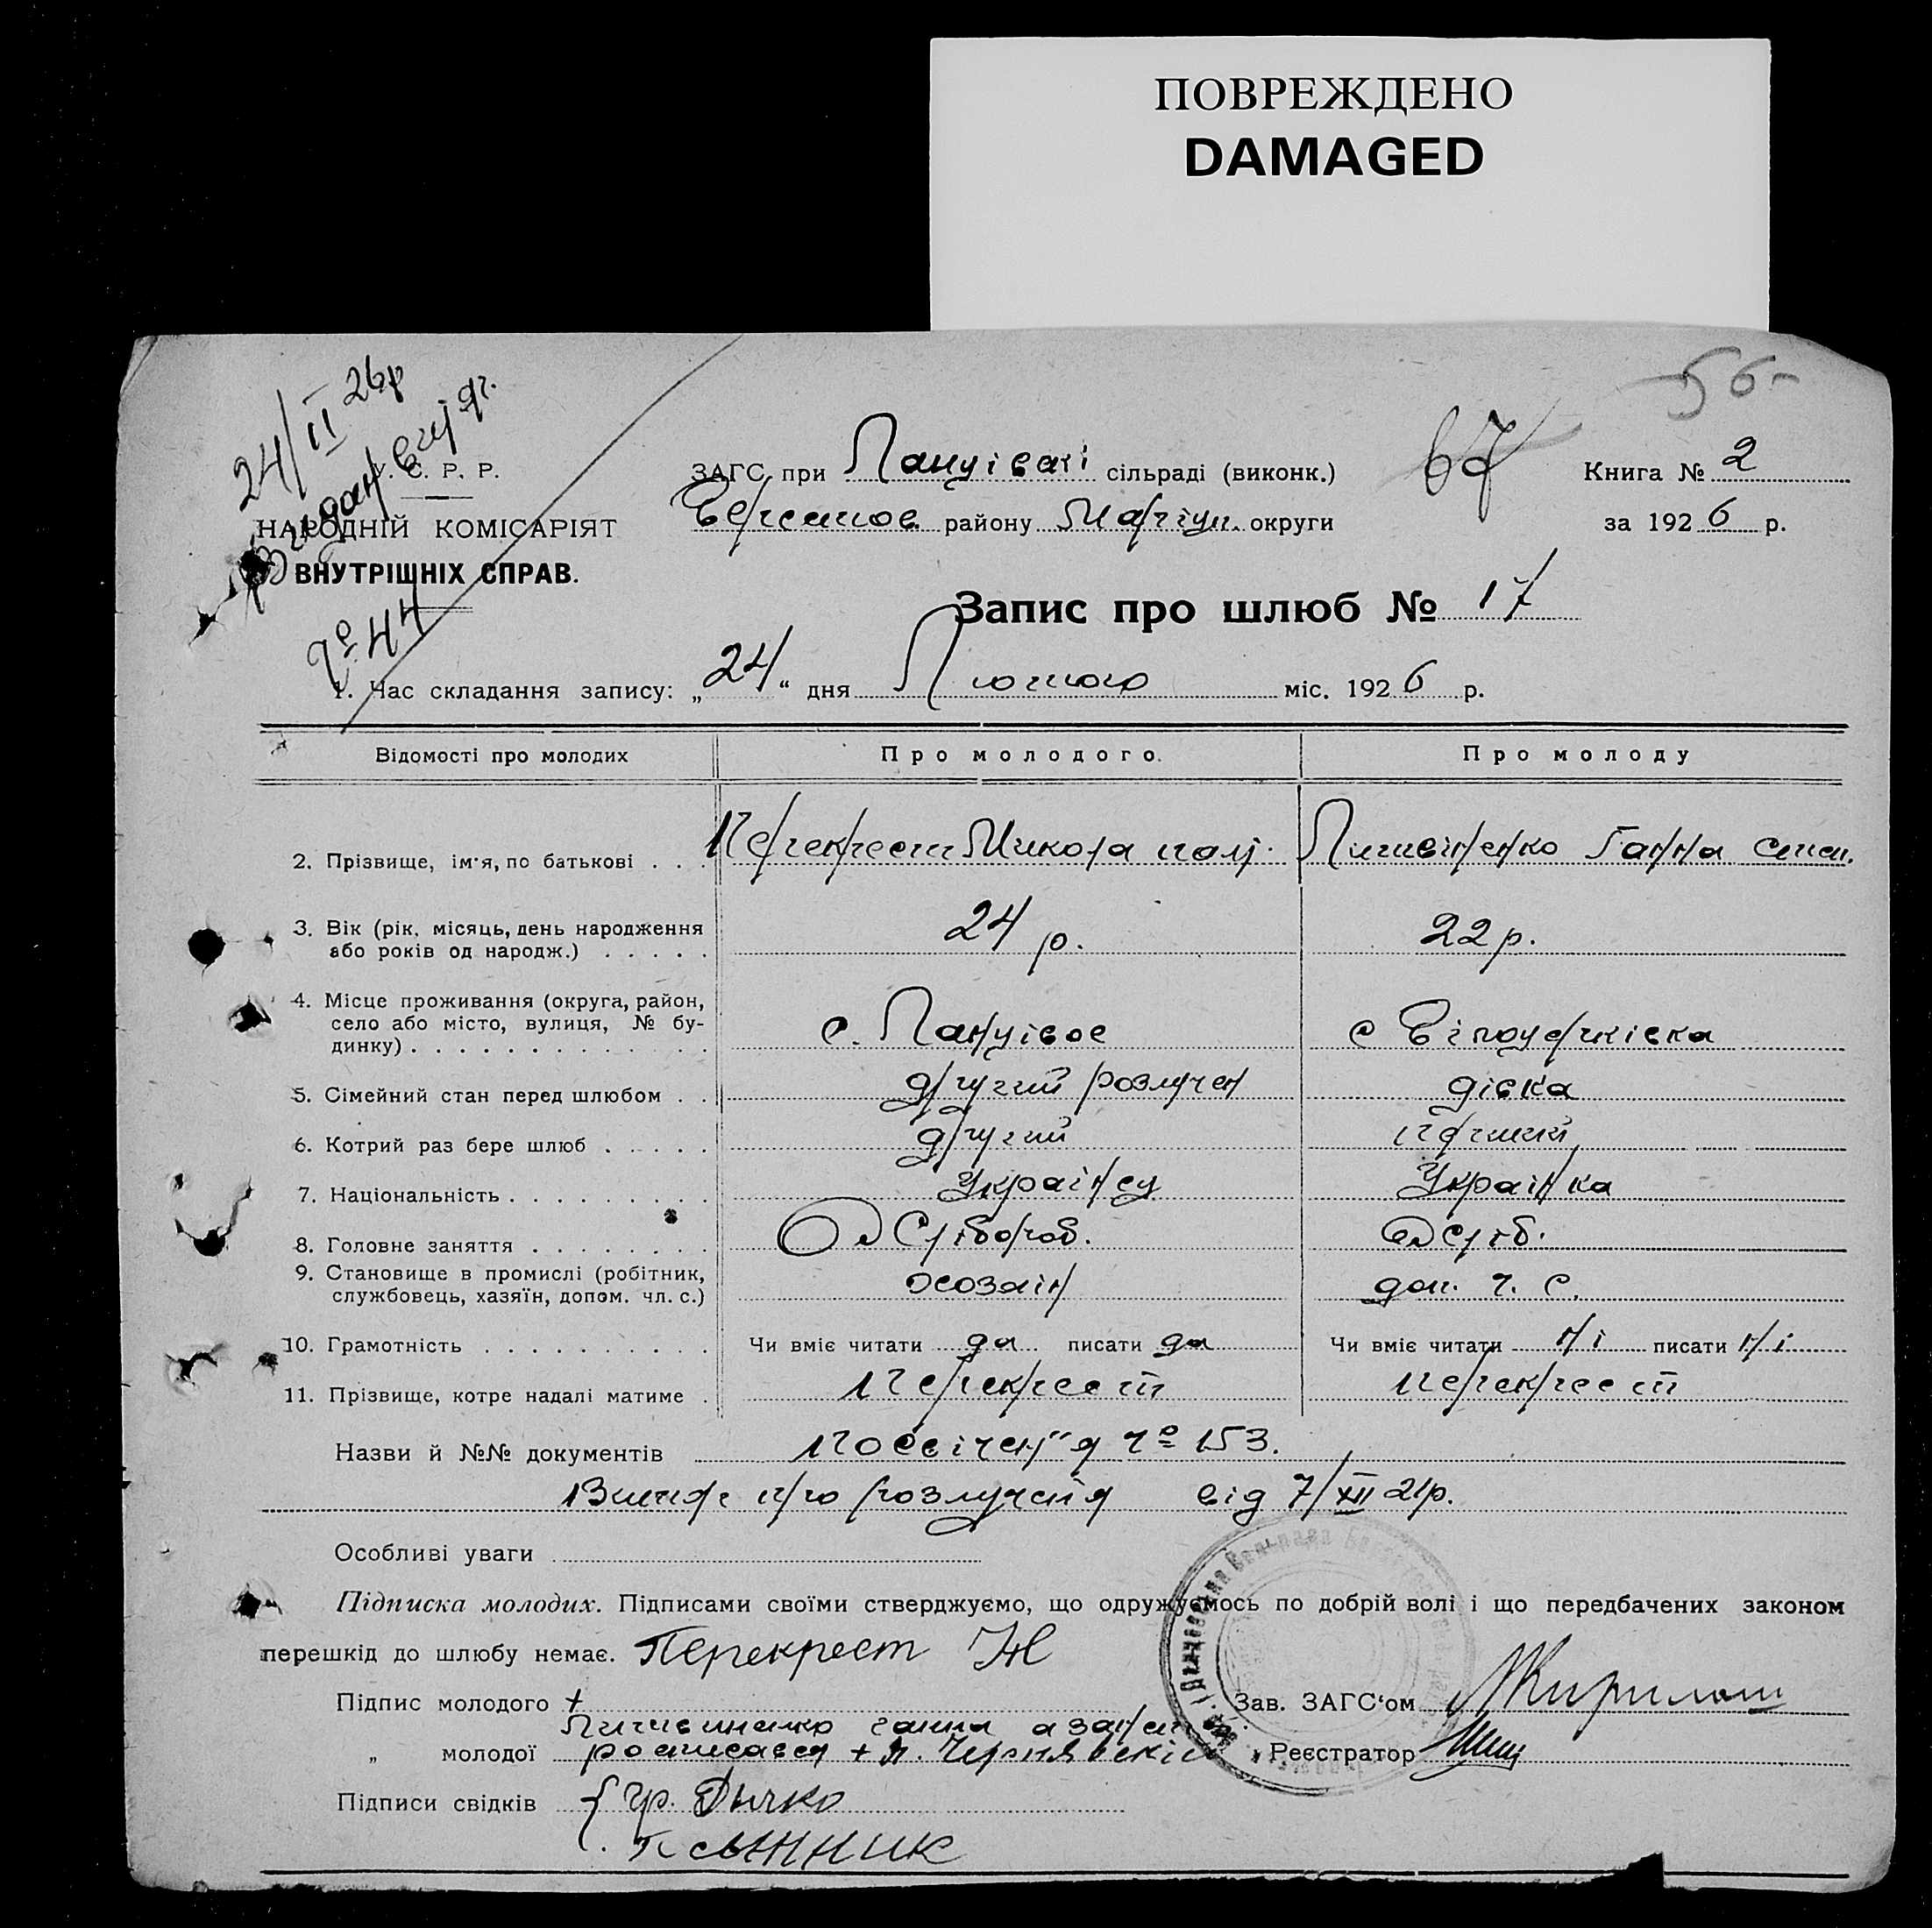 ПОВРЕЖДЕНО
DAMAGED
56
24/II 26р
У. С. Р. Р.
НАРОДНІЙ КОМІСАРІЯТ
ВНУТРІШНІХ СПРАВ.
№ 44
ЗАГС при сільраді (виконк.)
району Маріуп. округи
67
Книга № 2
за 1926 р.
Запис про шлюб № 17
1. Час складання запису: „24“ дня Лютого міс. 1926 р.
Відомості про молодих Про молодого. Про молоду
2. Прізвище, ім'я, по батькові . . . Перекрест Микола Литвіненко Ганна
3. Вік (рік, місяць, день народження
або років од народж.) . . . . . 24 р. 22 р.
4. Місце проживання (округа, район,
село або місто, вулиця, № бу-
динку) . . . . . . . . . . . . . с. с
5. Сімейний стан перед шлюбом . . другий розлучен дівка
6. Котрий раз бере шлюб . . . . . другий перший
7. Національність . . . . . . . . . Українец Українка
8. Головне заняття . . . . . . . .
9. Становище в промислі (робітник,
службовець, хазяїн, допом. чл. с.) хозяін доп. ч. с.
10. Грамотність . . . . . . . . . . Чи вміє читати да писати да Чи вміє читати ні писати ні
11. Прізвище, котре надалі матиме . Перекрест Перекрест
Назви й №№ документів Посвіченʼя № 153.
про розлучення від 7/XII 21р.
Особливі уваги
Підписка молодих. Підписами своїми стверджуємо, що одружуємось по добрій волі і що передбачених законом
перешкід до шлюбу немає. Перекрест
Підпис молодого + Зав. ЗАГС'ом
Литвиненко ганна
„ молодої росписався + Чернявский Реєстратор
Підписи свідків гр. Дычко